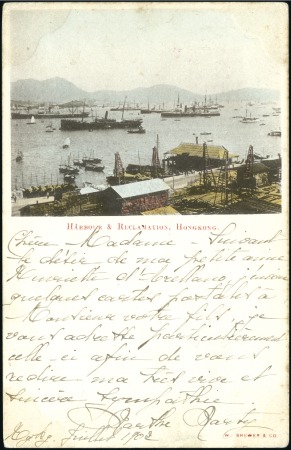 HARBOUR & RECLAMATION, HONGKONG.
Chère Madame - Suivant
le désir de ma petite amie
Henriette d'
quelques cartes postales à
Monsieur votre fils, je
vous adresse particulièrement
afin de vous
redire ma très vive et
sincère sympathie.
Marthe
1902
W. BREWER & CO.